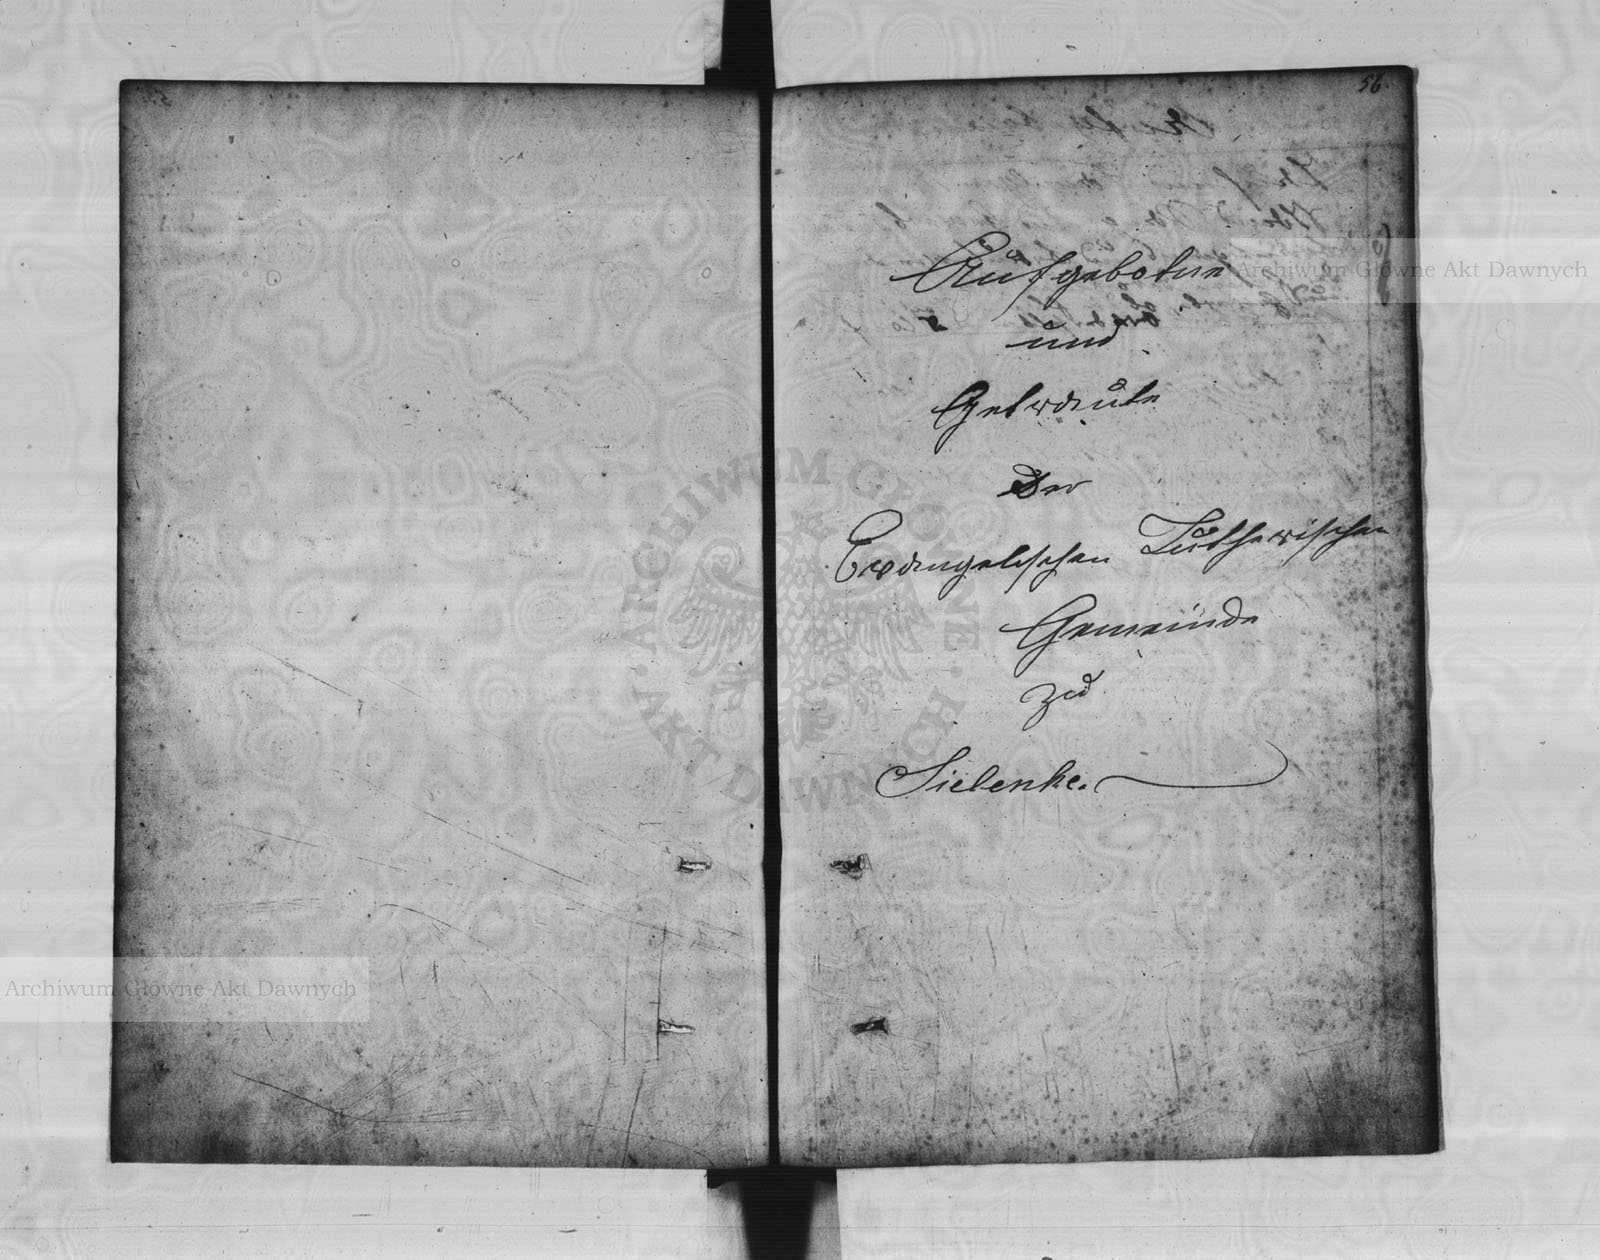 56.
Aufgebotne
und
Getraute
Der
Evangelischen Lutherischen
Gemeinde
zu
Sielenke.
Archiwum Główne Akt Dawnych
ARCHIWUM GŁÓWNE · AKT DAWNYCH ·
Archiwum Główne Akt Dawnych